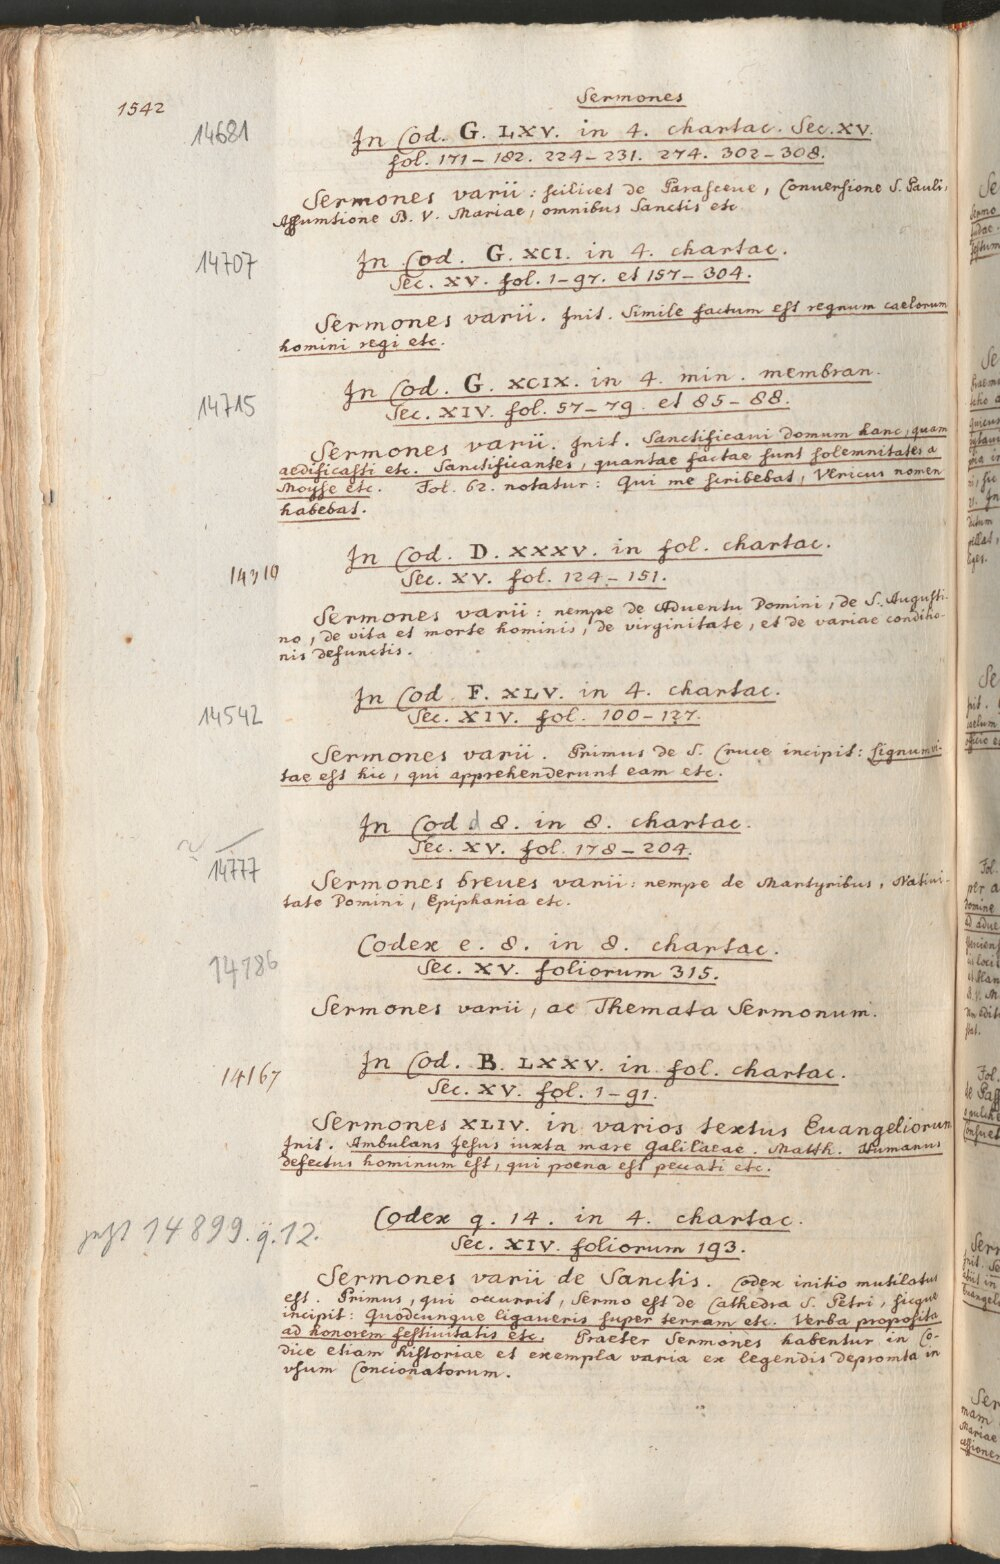 1542
Sermones
14681
In Cod. G. LXV. in 4. chartac. Sec. XV.
fol. 171-182. 224-231. 274. 302-308.
Sermones varii: scilicet de Parasceue, Conuersione S. Pauli,
Assumtione B. V. Mariae, omnibus Sanctis etc.
14707
In Cod. G. XCI. in 4. chartac.
Sec. XV. fol. 1-97. et 157-304.
Sermones varii. Init. Simile factum est regnum caelorum
homini regi etc.
14715
In Cod. G. XCIX. in 4. min. membran.
Sec. XIV. fol. 57-79. et 85-88.
Sermones varii. Init. Sanctificaui domum hanc, quam
aedificasti etc. Sanctificantes, quantae factae sunt solemnitates a
Moyse etc. Fol. 62. notatur: Qui me scribebat, Vericus nomen
habebat.
14310
In Cod. D. XXXV. in fol. chartac.
Sec. XV. fol. 124-151.
Sermones varii: nempe de Aduentu Domini, de S. Augusti-
no, de vita et morte hominis, de virginitate, et de variae conditio-
nis defunctis.
14542
In Cod. F. XLV. in 4. chartac.
Sec. XIV. fol. 100-127.
Sermones varii. Primus de S. Cruce incipit: Lignum vi-
tae est hic, qui apprehenderunt eam etc.
14777
In Cod d 8. in 8. chartac.
Sec. XV. fol. 178-204.
Sermones breues varii: nempe de Martyribus, Natiui-
tate Domini, Epiphania etc.
14786
Codex e. 8. in 8. chartac.
Sec. XV. foliorum 315.
Sermones varii, ac Themata Sermonum.
14167
In Cod. B. LXXV. in fol. chartac.
Sec. XV. fol. 1-91.
Sermones XLIV. in varios textus Euangeliorum
Init. Ambulans Jesus iuxta mare Galilaeae. Matth. Humanus
defectus hominum est, qui poena est peccati etc.
jetzt 14899. q. 12.
Codex q. 14. in 4. chartac.
Sec. XIV. foliorum 193.
Sermones varii de Sanctis. Codex initio mutilatus
est. Primus, qui occurrit, Sermo est de Cathedra S. Petri, sicque
incipit: Quodcunque ligaueris super terram etc. Verba proposita
ad honorem festiuitatis etc. Praeter Sermones habentur in Co-
dice etiam historiae et exempla varia ex legendis depromta in
vsum Concionatorum.